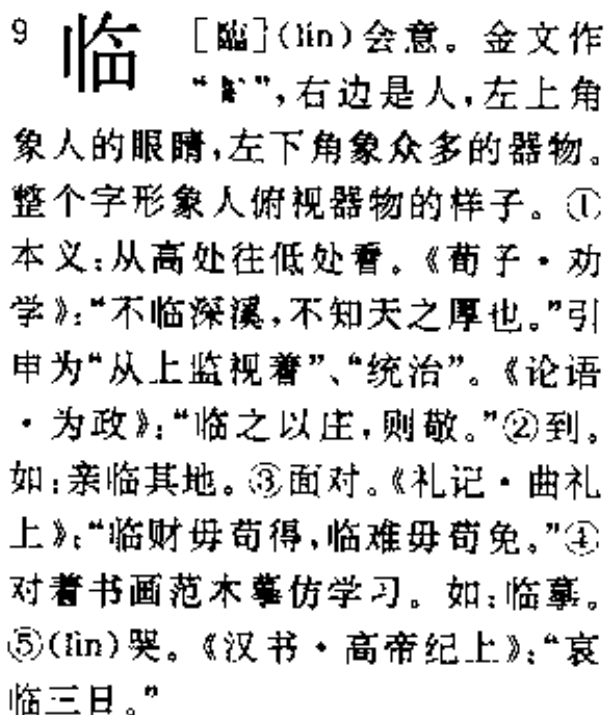 9 临 [臨](lín)会意。金文作
“ ”,右边是人,左上角
象人的眼睛,左下角象众多的器物。
整个字形象人俯视器物的样子。①
本义:从高处往低处看。《荀子·劝
学》:“不临深溪,不知天之厚也。”引
申为“从上监视着”、“统治”。《论语
·为政》:“临之以庄,则敬。”②到。
如:亲临其地。③面对。《礼记·曲礼
上》:“临财毋苟得,临难毋苟免。”④
对着书画范本摹仿学习。如:临摹。
⑤(lìn)哭。《汉书·高帝纪上》:“哀
临三日。”